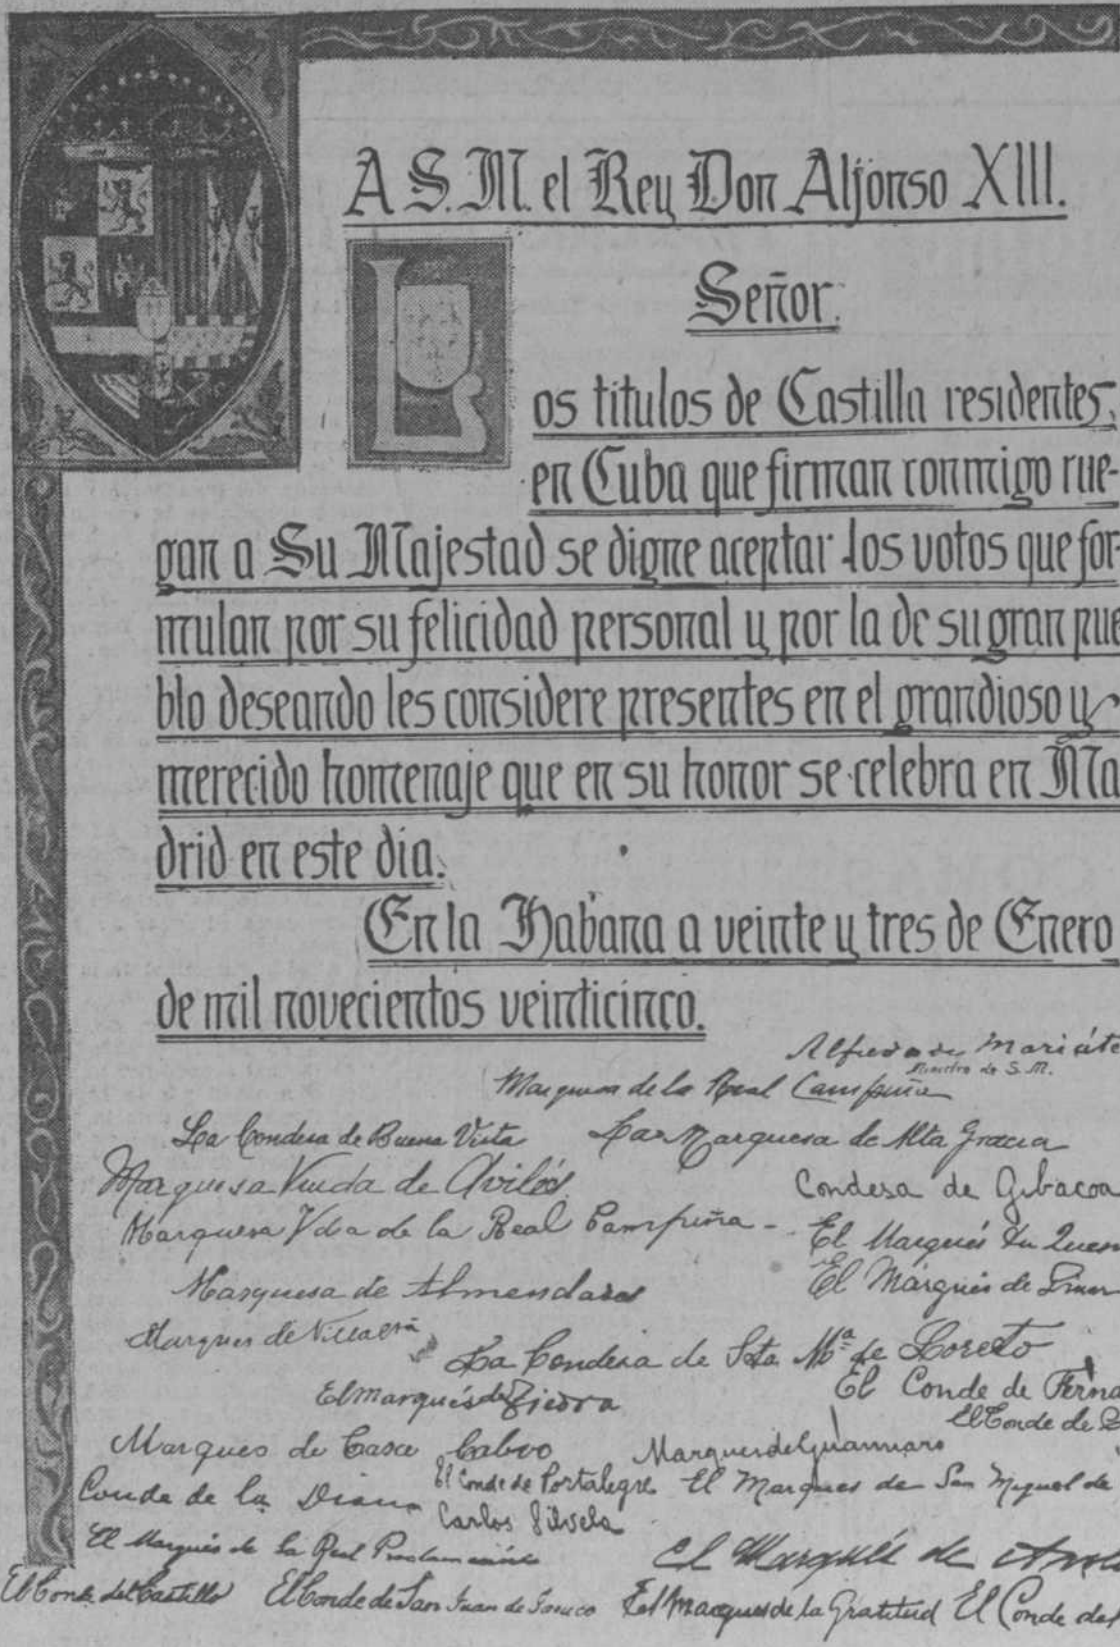 A S. M. el Rey Don Alfonso XIII.
Señor:
Los titulos de Castilla residentes,
en Cuba que firman conmigo rue-
gan a Su Majestad se digne aceptar los votos que for-
mulan por su felicidad personal y por la de su gran pue
blo deseando les considere presentes en el grandioso y
merecido homenaje que en su honor se celebra en Ma
drid en este dia.
En la Habana a veinte y tres de Enero
de mil novecientos veinticinco.
Alfredo de Mariáte
Ministro de S. M.
Marquesa de la Real Campiña
La Condesa de Buena Vista La Marquesa de Alta Gracia
Marquesa Viuda de Avilés Condesa de Gibacoa
Marquesa Vda de la Real Campiña - El Marqués Du Ques
Marquesa de Almendares El Marqués de
Marques de
La Condesa de Sta. Mª de Loreto
El Marqués de Tiedra El Conde de Ferna
El Conde de
Marques de Casa Calvo Marques del
Conde de la Diana El Conde de Portalegre El Marques de San Miguel de
Carlos Silvela
El Marqués de La Real Proclamación El Marqués de
El Conde del Castillo El Conde de San Juan de Jaruco El Marques de la Gratitud El Conde del